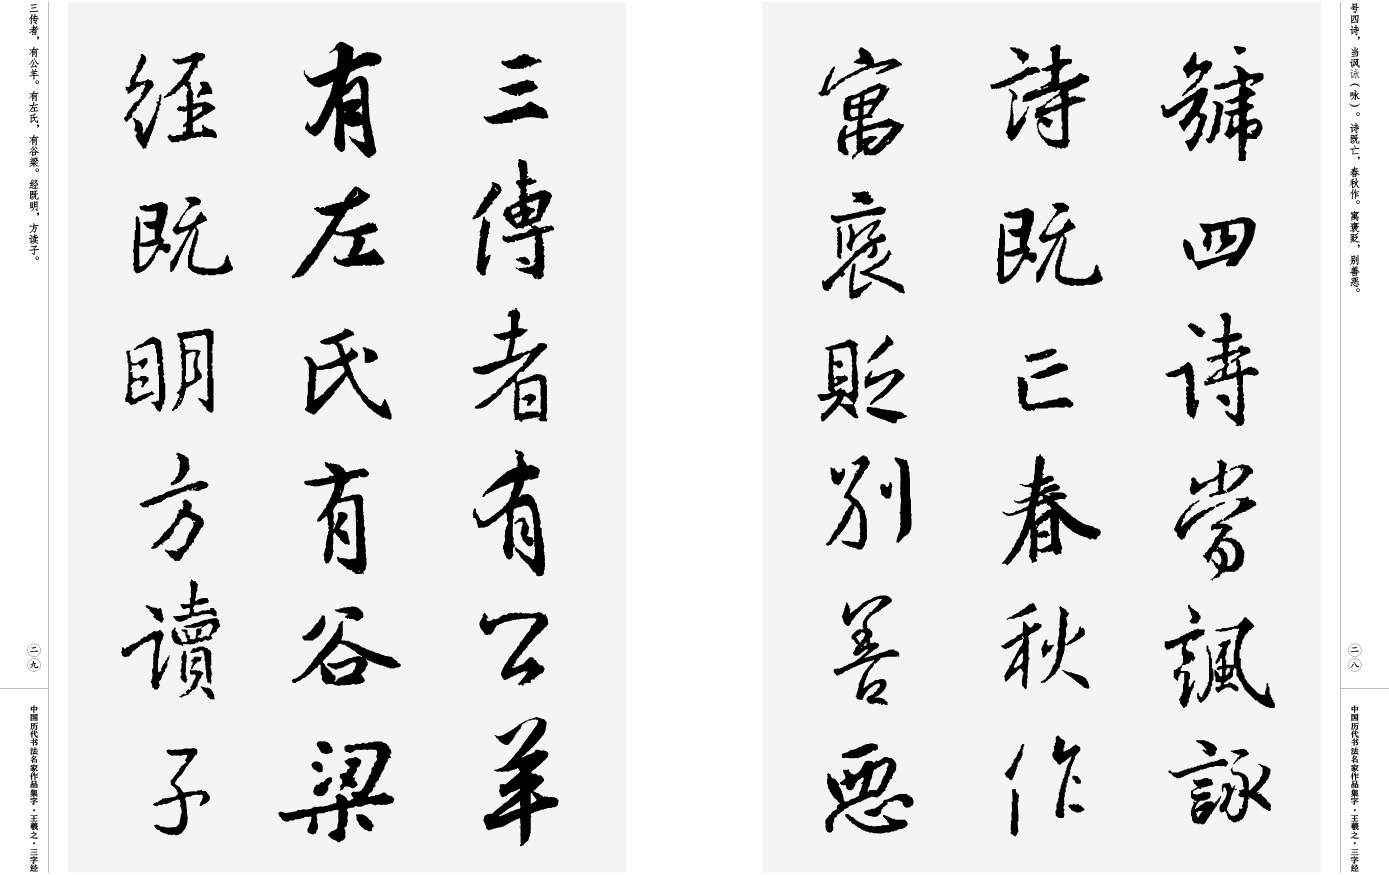 号四诗，当讽泳（咏）。诗既亡，春秋作。寓褒贬，别善恶。
二八
中国历代书法名家作品集字·王羲之·三字经
號四詩當諷詠
詩既亡春秋作
寓褒貶別善惡
三傳者有公羊
有左氏有谷梁
經既明方讀子
三传者，有公羊。有左氏，有谷梁。经既明，方读子。
二九
中国历代书法名家作品集字·王羲之·三字经